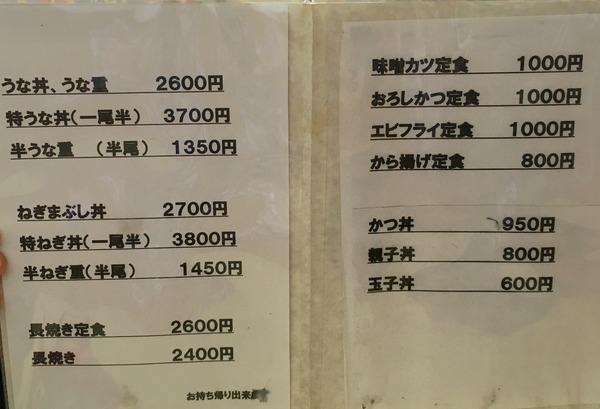 うな丼、うな重 2600円
特うな丼(一尾半) 3700円
半うな重 (半尾) 1350円
ねぎまぶし丼 2700円
特ねぎ丼(一尾半) 3800円
半ねぎ重(半尾) 1450円
長焼き定食 2600円
長焼き 2400円
お持ち帰り出来
味噌カツ定食 1000円
おろしかつ定食 1000円
エビフライ定食 1000円
から揚げ定食 800円
かつ丼 950円
親子丼 800円
玉子丼 600円